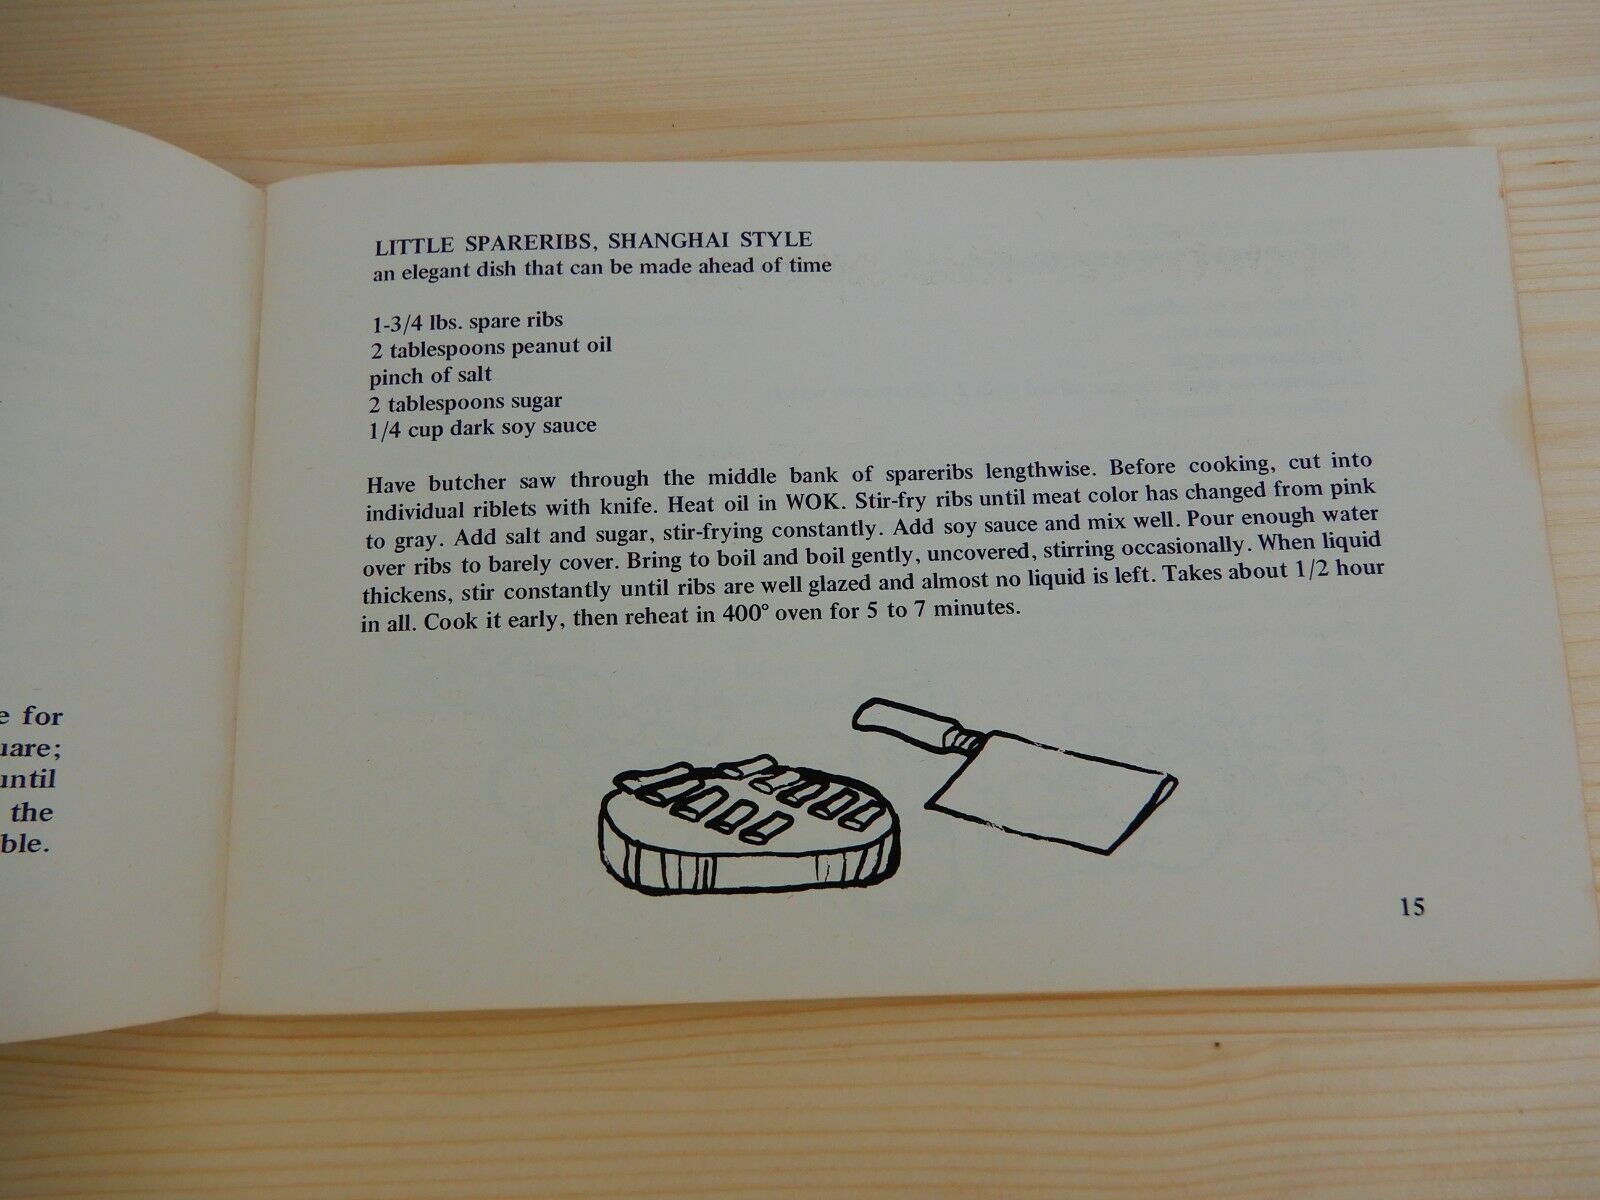 e for
uare;
until
the
ble.
LITTLE SPARERIBS, SHANGHAI STYLE
an elegant dish that can be made ahead of time
1-3/4 lbs. spare ribs
2 tablespoons peanut oil
pinch of salt
2 tablespoons sugar
1/4 cup dark soy sauce
Have butcher saw through the middle bank of spareribs lengthwise. Before cooking, cut into
individual riblets with knife. Heat oil in WOK. Stir-fry ribs until meat color has changed from pink
to gray. Add salt and sugar, stir-frying constantly. Add soy sauce and mix well. Pour enough water
over ribs to barely cover. Bring to boil and boil gently, uncovered, stirring occasionally. When liquid
thickens, stir constantly until ribs are well glazed and almost no liquid is left. Takes about 1/2 hour
in all. Cook it early, then reheat in 400° oven for 5 to 7 minutes.
15